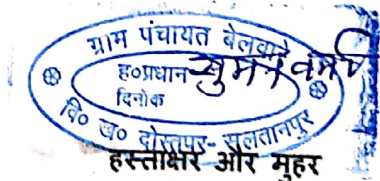 ग्राम पंचायत बेलवारे
ह०प्रधान सुमन वर्मा
दिनांक
वि० ख० दोस्तपुर- सुलतानपुर
हस्ताक्षर और मुहर